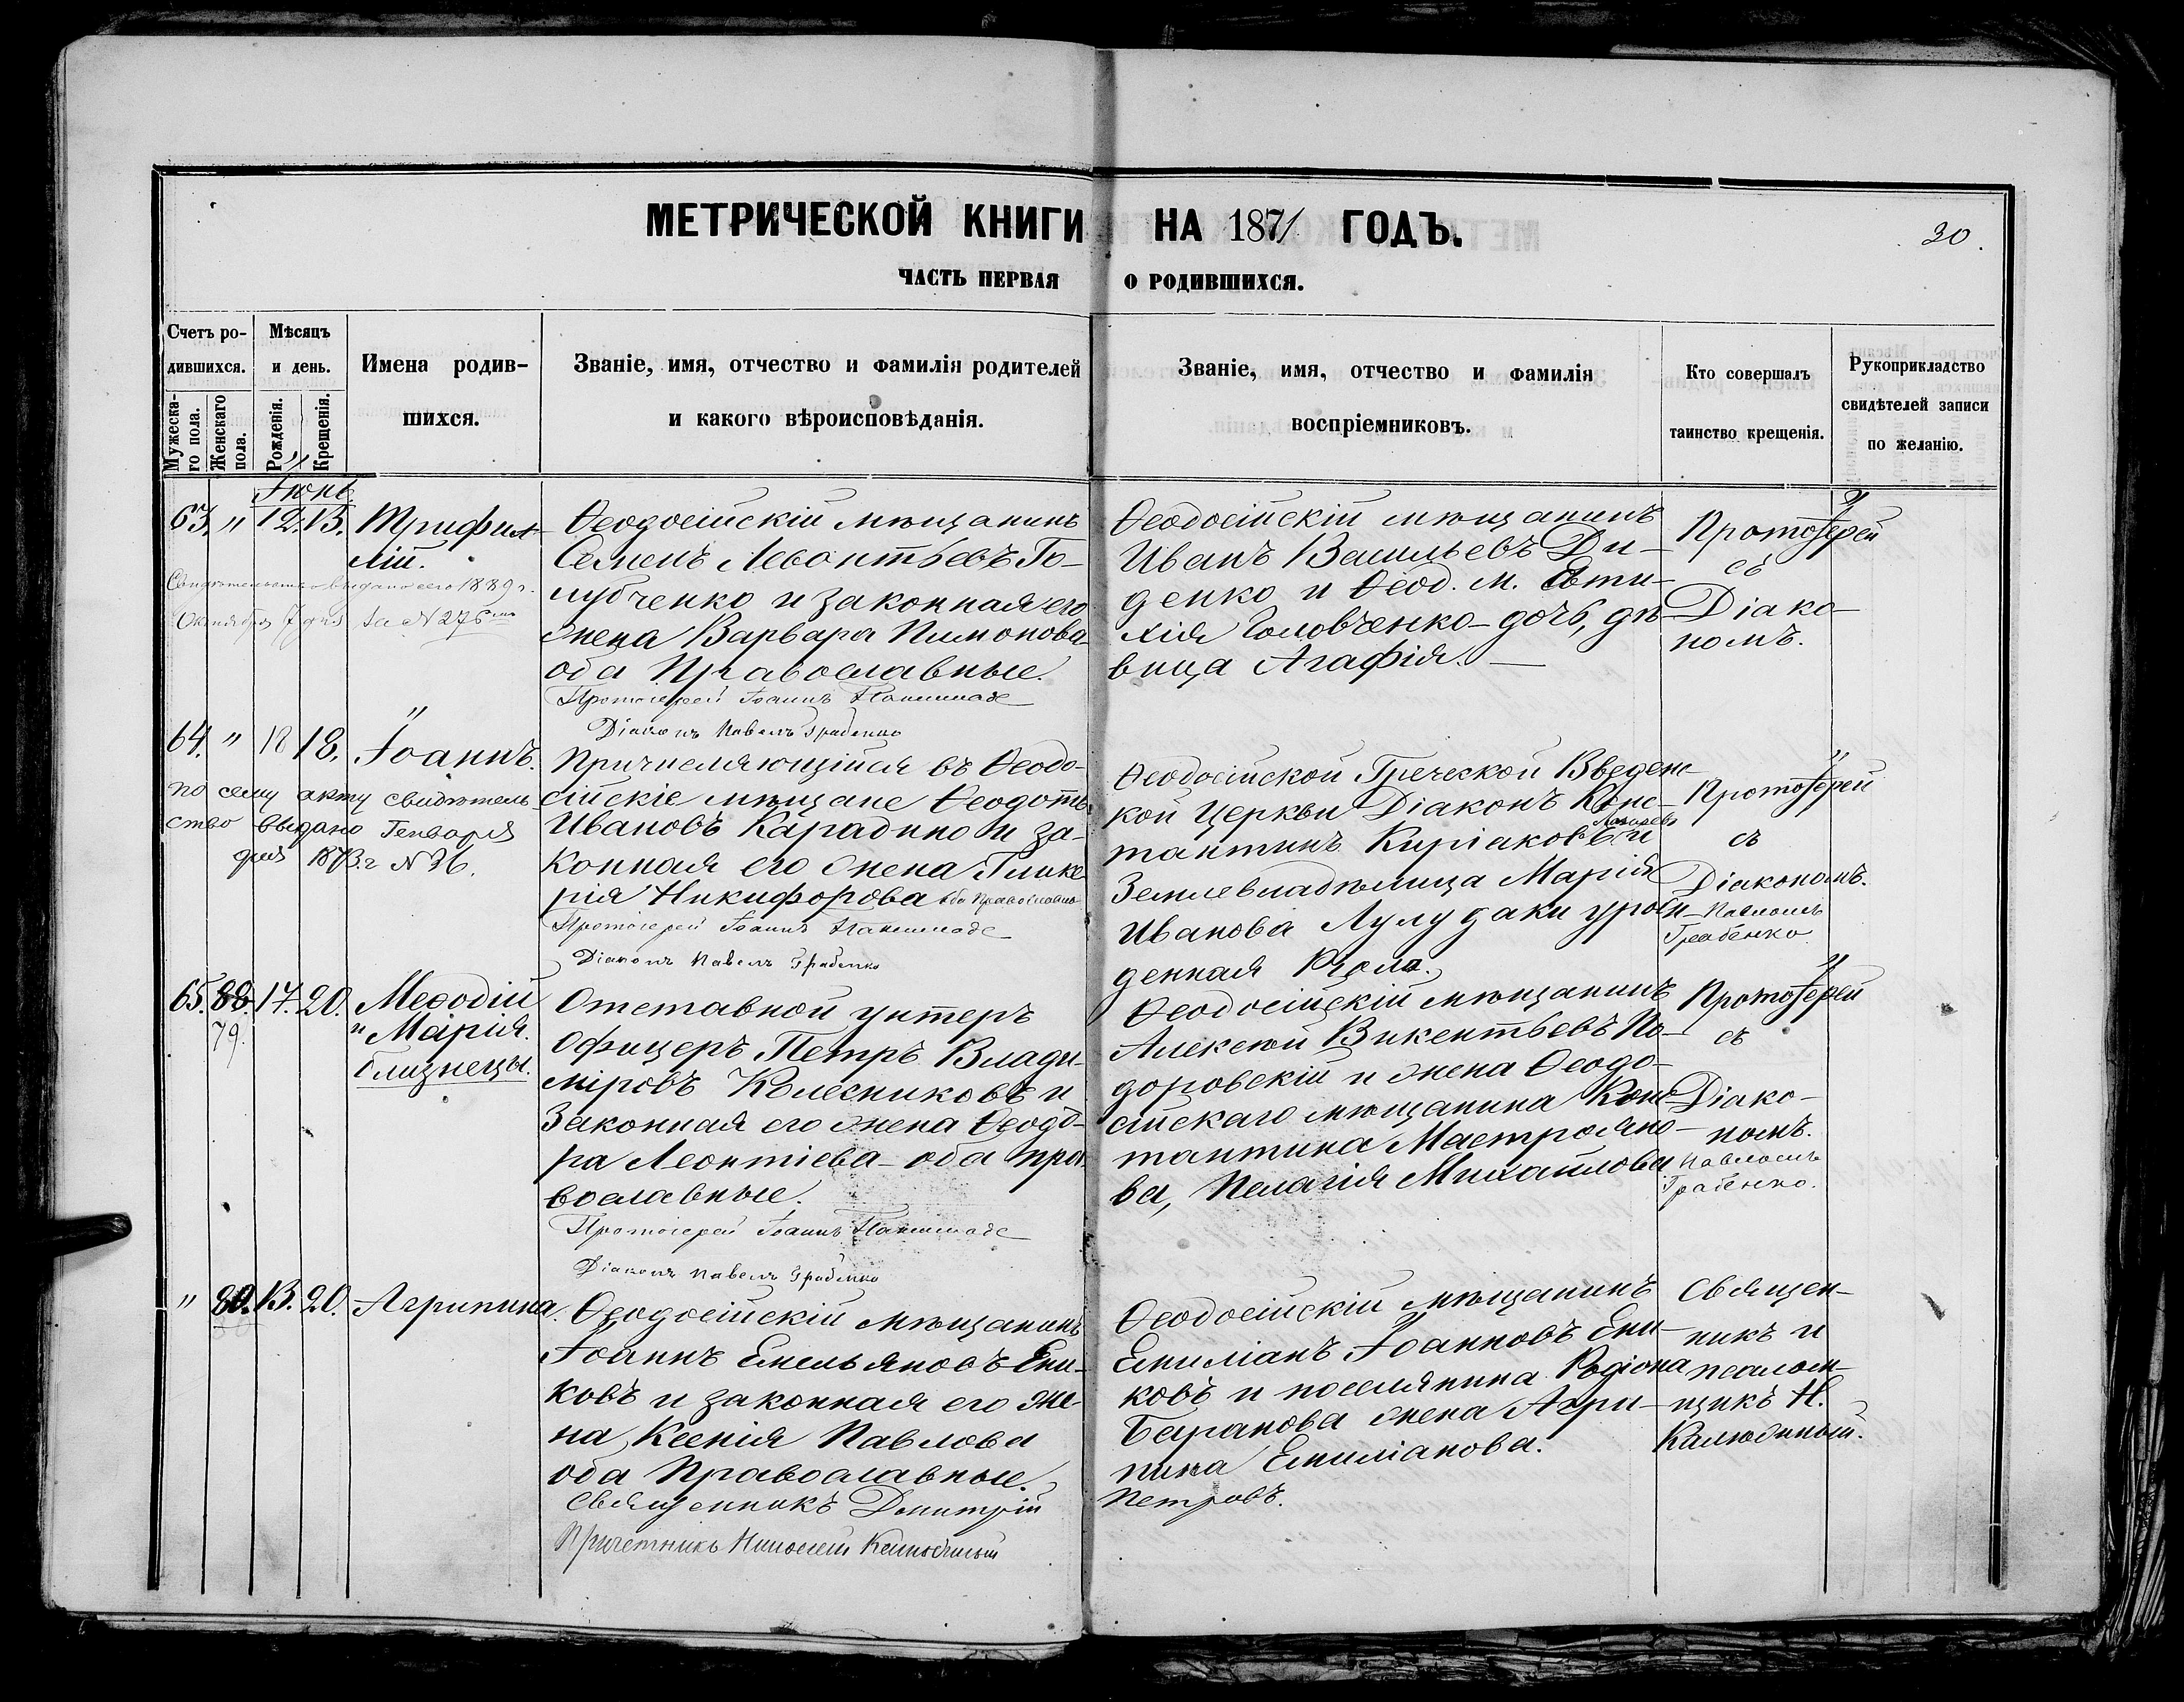 МЕТРИЧЕСКОЙ КНИГИ НА 1871 ГОДЪ.
30.
ЧАСТЬ ПЕРВАЯ О РОДИВШИХСЯ.
Счетъ ро-
дившихся.
Мужеска-
го пола.
Женскаго
пола.
Мѣсяцъ
и день.
Рожденія.
Крещенія.
Имена родив-
шихся.
Званіе, имя, отчество и фамилія родителей
и какого вѣроисповѣданія.
Званіе, имя, отчество и фамилія
воспріемниковъ.
Кто совершалъ
таинство крещенія.
Рукоприкладство
свидѣтелей записи
по желанію.
Іюнь.
63. " 12. 13. Трифил-
лій.
Свидѣтельство выдано сего 1889 г.
Октября 7 дня за № 276
Ѳеодосійскій мѣщанинъ
Семенъ Левонтьевъ Го-
лубченко и законная его
жена Варвара Пимонова
оба Православные.
Протоіерей Іоаннъ
Діаконъ Павелъ Грабенко
Ѳеодосійскій мѣщанинъ
Иванъ Васильевъ Ди-
денко и Ѳеод. м. Евти-
хія Головченко-дочь, дѣ-
вица Агафія.
Протоіерей
съ
Діако-
номъ.
64. " 18 18. Іоаннъ.
по сему акту свидѣтель
ство выдано Генваря
дня 1873 г № 36.
Причисляющійся въ Ѳеодо-
сійскіе мѣщане Ѳеодотъ
Ивановъ Карадино и за-
конная его жена Глике
рія Никифорова оба Православн
Протоіерей Іоаннъ
Діаконъ Павелъ Грабенко
Ѳеодосійской Греческой Введенс
кой Церкви Діаконъ Конс-
тантинъ Киріаковъ и
Землевладѣлица Марія
Иванова Лулудаки урож
денная
Протоіерей
съ
Діакономъ.
Павломъ
Грабенко.
65. 88. 17. 20. Меѳодій
79. и Марія.
близнецы.
Отставной унтеръ
Офицеръ Петръ Влади-
міровъ Колесниковъ и
Законная его жена Ѳеодо-
ра Леонтіева - оба пра
вославные.
Протоіерей Іоаннъ
Діаконъ Павелъ Грабенко
Ѳеодосійскій мѣщанинъ
Алексѣй Викентьевъ По-
доровскій и жена Ѳеодо-
сійскаго мѣщанина Конс
тантина Мастрояно-
ва, Пелагія Михайлова
Протоіерей
съ
Діако-
номъ.
Павломъ
Грабенко.
" 80. 13. 20. Агрипина.
Ѳеодосійскій мѣщанинъ
Іоаннъ Емельяновъ Ени-
ковъ и законная его же-
на, Ксенія Павлова
оба Православные.
Священникъ Димитрій Петровъ.
Причетникъ Николай Калюжный
Ѳеодосійскій мѣщанинъ
Емиліанъ Іоанновъ Ени-
ковъ и поселянина Родіона
Баранова жена Агри-
пина Емиліанова.
Священ-
никъ и
псалом-
щикъ Н.
Калюжный.